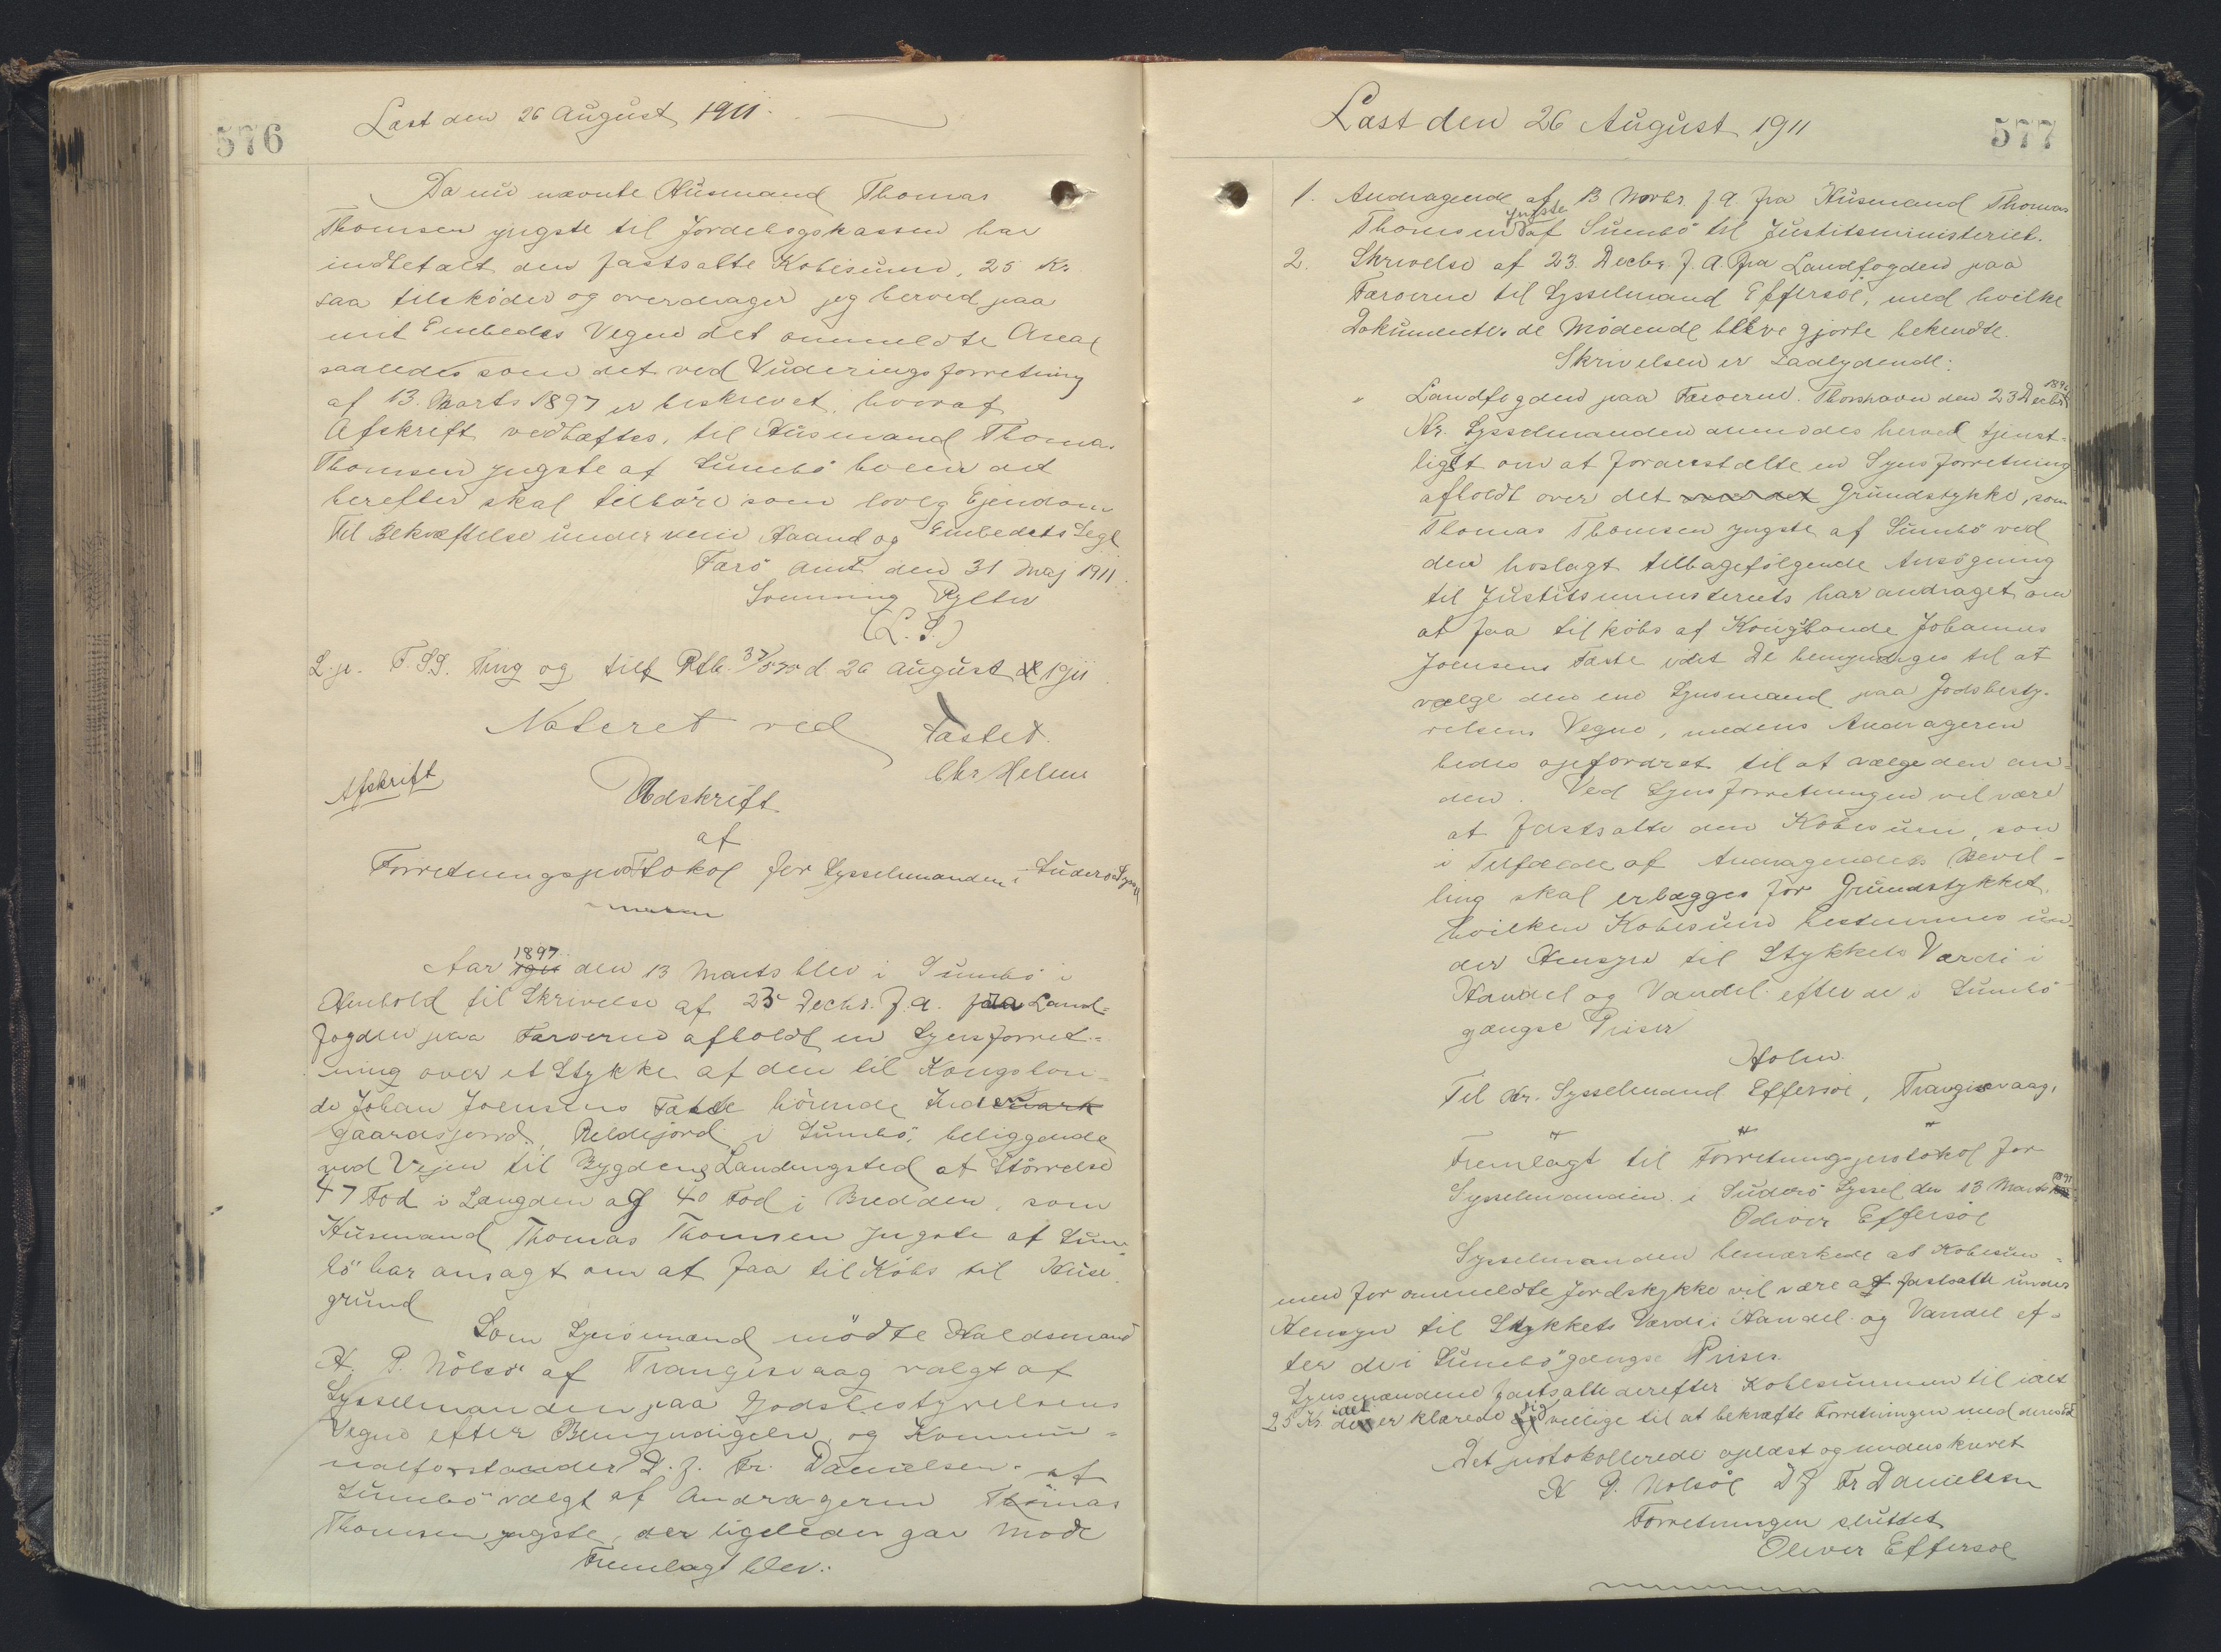 576
Læst den 26 August 1911.
Da nu nævnte Husmand Thomas
Thomsen yngste til Jordebogskassen har
indbetalt den fastsatte Købesum, 25 Kr.
saa tilskøder og overdrager jeg herved paa
mit Embedes Vegne det ommeldte Areal
saaledes som det ved Vurderingsforretning
af 13. Marts 1897 er beskrevet, hvoraf
Afskrift vedhæftes, til Husmand Thomas
Thomsen yngste af Sumbö hvem det
herefter skal tilhöre som lovlg Ejendom
Til Bekræftelse under min Haand og Embedets Segl
Færö Amt den 31 Maj 1911.
Svenning Rytter
(L. S.)
L. p. F. S.S. Ting og tilf Rtb. 37/575 d. 26 August 1911.
Noteret ved Fæstet.
Chr Helms
Afskrift
Udskrift
af
Forretningsprotokol for Sysselmanden i Suderö Syssel
Aar 1897 den 13 Marts blev i Sumbö i
Henhold til Skrivelse af 23 Decbr. f. A. fra Land=
fogden paa Færoerne afholdt en Synsforret=
ning over et Stykke af den til Kongsbon=
de Johan Joensens Fæste hörende Indmark
Gaardsjord, Reldejord i Sumbö, beliggende
ved Vejen til Bygdens Landingsted af Störrelse
47 Fod i Længden og 40 Fod i Bredden, som
Husmand Thomas Thomsen yngste af Sum=
bö har ansøgt om at faa til Købs til Huse
grund
Som Synsmænd mödte Haldsmand
H. P. Nölsöe af Trangisvaag valgt af
Sysselmanden paa Godsbestyrelsens
Vegne efter Bemyndigelse og Kommu=
nalforstander D. J. Fr. Danielsen af
Sumbö valgt af Andrageren Thomas
Thomsen yngste, der ligeledes gav Møde
Fremlagt blev:
Læst den 26 August 1911
577
1. Andragende af 13 Novbr. f A. fra Husmand Thomas
Thomsen yngste af Sumbö til Justitsministeriet.
2. Skrivelse af 23. Decbr. f. A. fra Landfogden paa
Færoerne til Sysselmand Effersöe, med hvilke
Dokumenter de Mödende bleve gjorte bekendte.
Skrivelsen er saalydende:
" Landfogden paa Færoerne. Thorshavn den 23 Decbr 1896
Hr. Sysselmanden anmodes herved tjenst=
ligst om at foranstalte en Synsforretning
afholdt over det Grundstykke, som
Thomas Thomsen yngste af Sumbö ved
den hoslagt tilbagefölgende Ansögning
til Justitsministeriets har andraget om
at faa til köbs af Kongsbonde Johannes
Joensens Fæste idet De bemyndiges til at
vælge den ene Synsmand paa Godsbesty-
relsens Vegne, medens Andrageren
bedes opfordret til at vælge den an=
den. Ved Synsforretningen vil være
at fastsætte den Købesum, som
i Tilfælde af Andragendes Bevil=
ling skal erlægges for Grundstykket,
hvilken Købesum bestemmes un=
der Hensyn til Stykkets Værdi i
Handel og Vandel efter de i Sumbö
gængse Priser
Holm.
Til Hr. Sysselmand Effersöe, Trangisvaag,
Fremlagt til Forretningsprotokol for
Sysselmanden i Suderö Syssel den 13 Marts 1897
Oliver Effersöe
Sysselmanden bemærkede at Købesum=
men for ommeldte Jordstykke vil være at fastsætte under
Hensyn til Stykkets Værdi i Handel og Vandel ef=
ter de i Sumbö gængse Priser.
Synsmændene fastsatte derefter Købesummen til ialt
25 Kr idet de erklærede sig villige til at bekræfte Forretningen med deres Ed
Det protokollerede oplæst og underskrevet
H P. Nolsöe D J Fr Danielsen
Forretningen sluttet
Oliver Effersöe